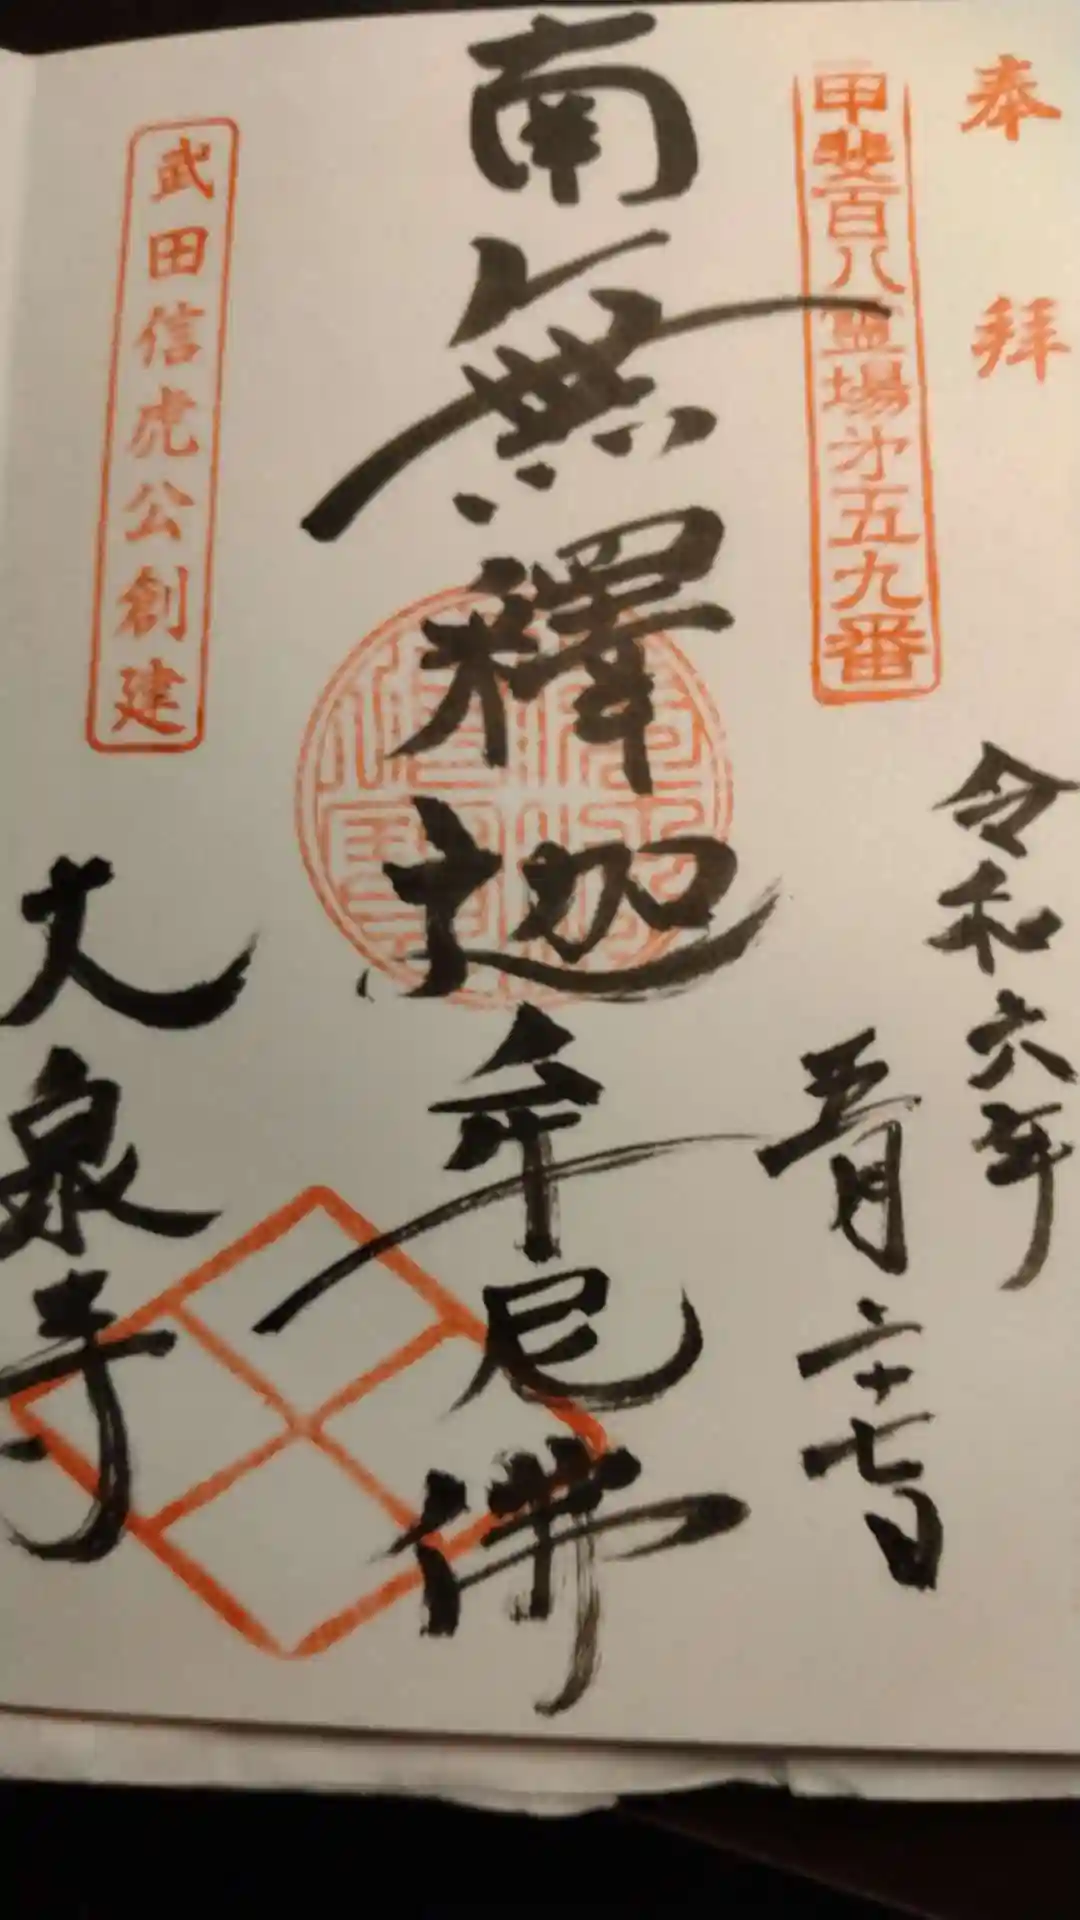 奉拜
甲斐百八霊場第五九番
令和六年
五月二十七日
南無釋迦牟尼佛
武田信虎公創建
大泉寺